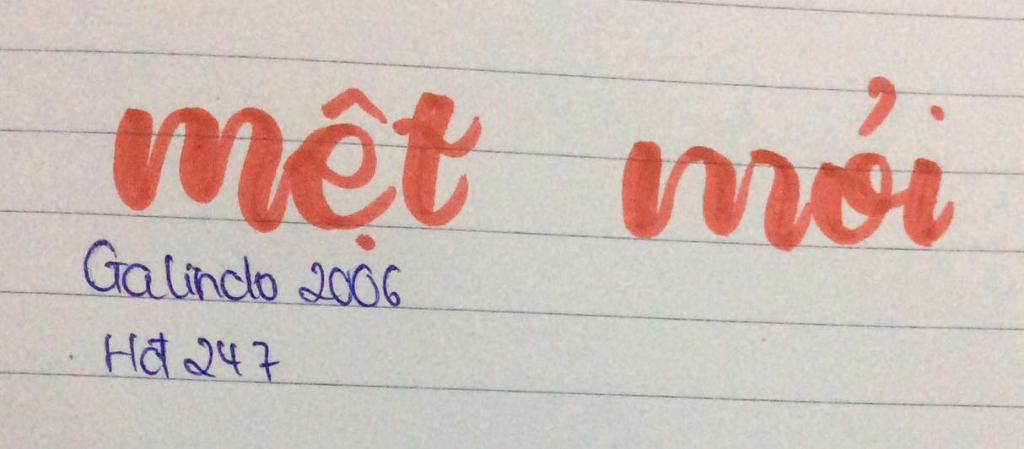 mệt mỏi
Galindo 2006
Hot 247